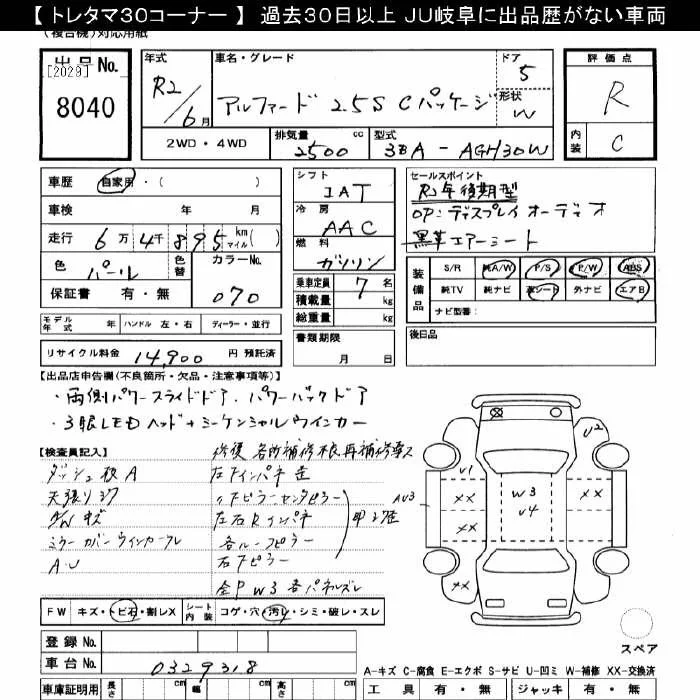 【 トレタマ30コーナー 】 過去30日以上 JU岐阜に出品歴がない車両
(複合機)対応用紙
出品No.
[2029]
8040
年式
R2/6月
車名・グレード
アルファード 2.5S Cパッケージ
ドア
5
形状
W
評価点
R
内装
C
2WD・4WD
排気量 cc
2500
型式
3BA - AGH30W
車歴 自家用・( )
車検 年 月
走行 6万4千895 km マイル( )
色 パール 色替 カラーNo. 070
保証書 有・無
シフト
IAT
冷房
AAC
燃料
ガソリン
乗車定員 7 名
積載量 kg
総重量 kg
書類期限
月 日
セールスポイント
R2年後期型
OP:ディスプレイオーディオ
黒革エアーシート
装備品
S/R 純A/W P/S P/W ABS
純TV 純ナビ 革シート 外ナビ エアB
ナビ型番:
後日品
モデル年式 年 ハンドル 左・右 ディーラー・並行
リサイクル料金 14,900 円 預託済
【出品店申告欄(不良箇所・欠品・注意事項等)】
・両側パワースライドドア、パワーバックドア
・3眼LEDヘッド+シーケンシャルウインカー
【検査員記入】
修復 各所補修
ダッシュ板A
天張り
キズ
ミラーカバー ウインカー
A・U
左右Rインパネ
各ルーフピラー
右Fピラー
全P W3 各パネルズレ
U2
U1
XX
XX
XX
XX
W3
U4
AU3
FW キズ・トビ石・割レX シート内装 コゲ・穴・汚レ・シミ・破レ・スレ
登録No.
車台No. 0329318
車庫証明用 長さ cm 幅 cm 高さ cm
スペア
A-キズ C-腐食 E-エクボ S-サビ U-凹ミ W-補修 XX-交換済
工具 有・無 ジャッキ 有・無